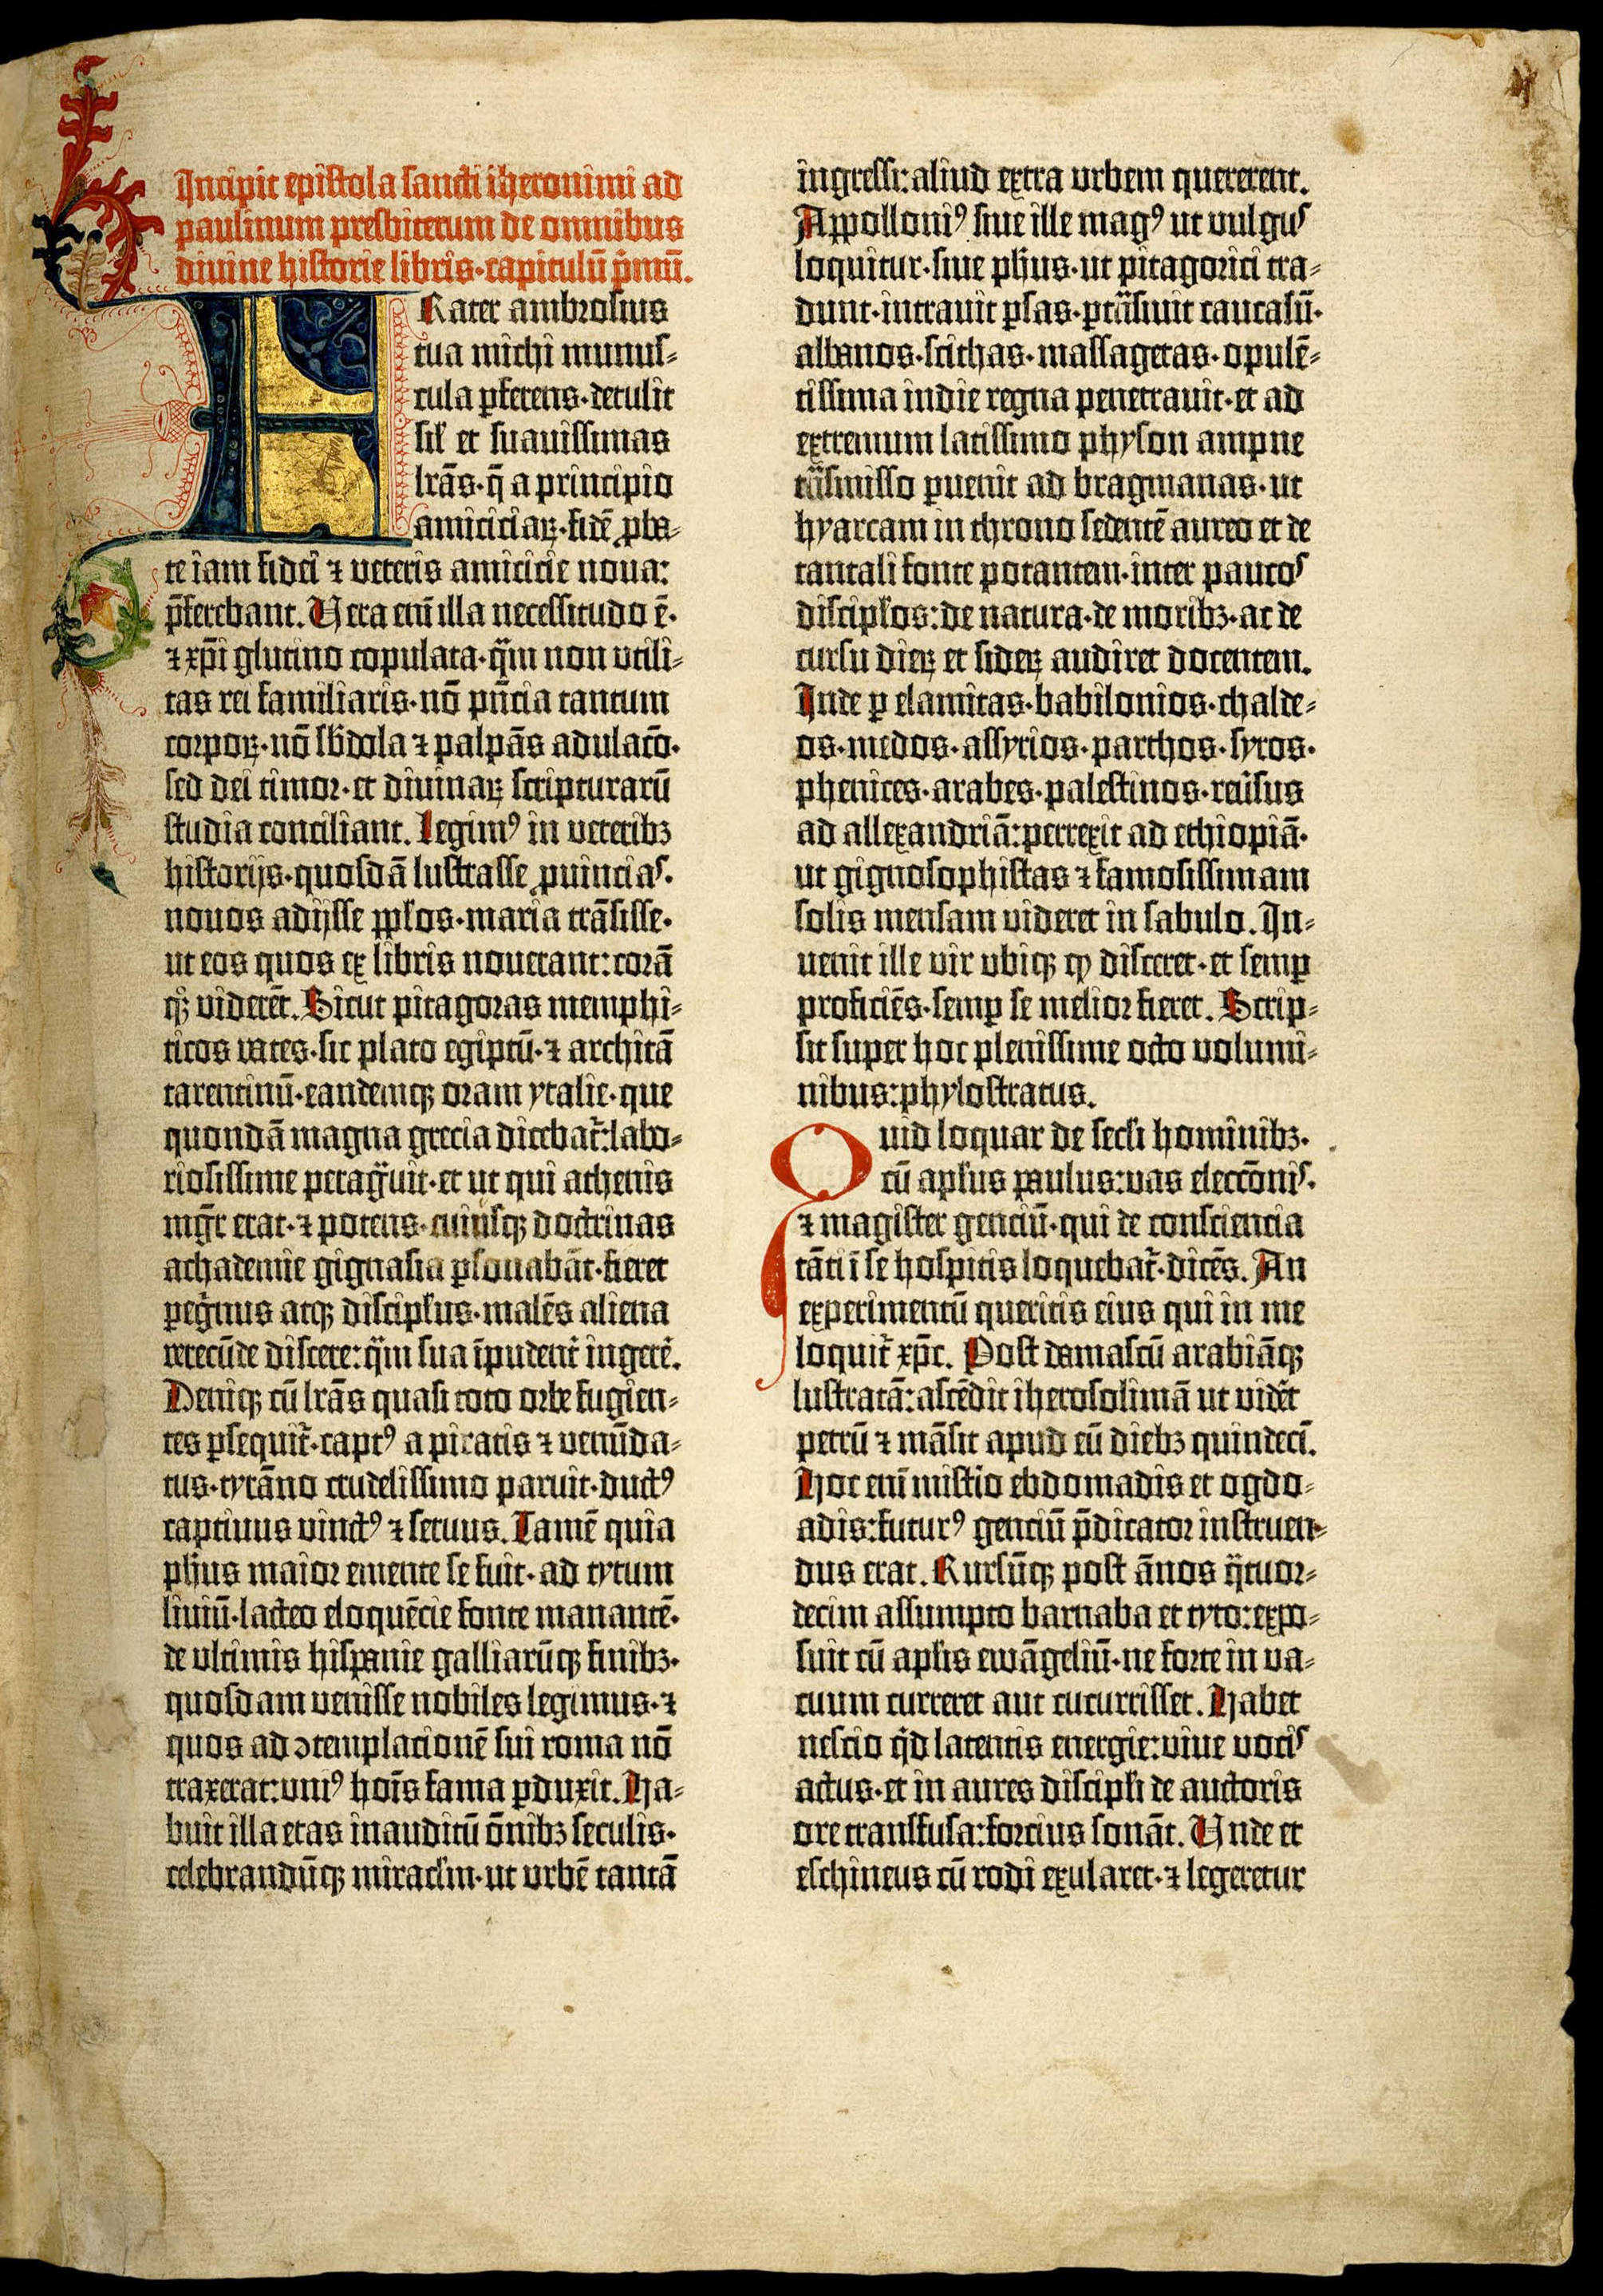 Incipit epistola sancti iheronimi ad
paulinum presbiterum de omnibus
divine historie libris·capitulū p̄mū.
FRater ambrosius
tua michi munus-
cula ꝑferens·detulit
sil' et suavissimas
lr̄as·q̄ a principio
amiciciaꝝ·fidē ꝓba-
te iam fidei ⁊ veteris amicicie nova:
p̄ferebant. Vera eni̅ illa necessitudo ē·
⁊ xp̄i glutino copulata·qͣm non utili-
tas rei familiaris·nō pn̄cia tantum
corpoꝝ·nō sb̄dola ⁊ palpās adulac̄o·
sed dei timor·et divinaꝝ scripturarū
studia conciliant. Legimꝰ in veteribꝫ
historijs·quosdā lustrasse ꝓvincias·
novos adijsse ppl̄os·maria trāsisse·
ut eos quos ex libris noverant: corā
qꝫ viderēt. Sicut pitagoras memphi-
ticos vates·sic plato egiptū·⁊ architā
tarentinū·eandemqꝫ oram ytalie·que
quondā magna grecia dicebat᷑: labo-
riosissime peragͣvit·et ut qui athenis
mgr̄ erat·⁊ potens·cuiusqꝫ doctrinas
achademie gignasia ꝑsonabāt·fieret
pegͥnus atqꝫ discipl̄us·malēs aliena
verecūde discere: qͣm sua īpudent᷑ ingerē.
Deniqꝫ cū lr̄as quasi toto orbe fugien-
tes ꝑsequit᷑·captꝰ a piratis ⁊ venūda-
tus·tyrāno crudelissimo paruit·ductꝰ
captivus vinctꝰ ⁊ servus. Tamē quia
ph̄us maior emente se fuit·ad tytum
liviū·lacteo eloquēcie fonte manantē·
de ultimis hispanie galliarūqꝫ finibꝫ·
quosdam venisse nobiles legimus·⁊
quos ad ↄtemplacionē sui roma nō
traxerat: uniꝰ hoīs fama ꝑduxit. Ha-
buit illa etas inauditū ōnibꝫ seculis·
celebrandūqꝫ miracl̄m·ut urbē tantā
ingressi: aliud extra urbem quererent.
Appolloniꝰ sive ille magꝰ ut vulgus
loquitur·sive ph̄us·ut pitagorici tra-
dunt·intravit ꝑsas·ꝑtͣsivit caucasū·
albanos·scithas·massagetas·opulē-
tissima indie regna penetravit·et ad
extremum latissimo physon ampne
tͣsmisso ꝑvenit ad bragmanas·ut
hyarcam in throno sedentē aureo et de
tantali fonte potantem·inter paucos
discipl̄os: de natura·de moribꝫ·ac de
cursu dieꝝ et sideꝝ audiret docentem.
Inde ꝑ elamitas·babilonios·chalde-
os·medos·assyrios·parthos·syros·
phenices·arabes·palestinos·reūsus
ad allexandriā: perrexit ad ethiopiā·
ut gignosophistas ⁊ famosissimam
solis mensam videret in sabulo. In-
venit ille vir ubiqꝫ qͦ disceret·et semꝑ
proficiēs·semꝑ se melior fieret. Scrip-
sit super hoc plenissime octo volumi-
nibus: phylostratus.
Quid loquar de secl̄i hominibꝫ·
cū apl̄us paulus: vas elecc̄onis·
⁊ magister genciū·qui de consciencia
tāti ī se hospitis loquebat᷑·dicēs. An
experimentū queritis eius qui in me
loquit᷑ xp̄c. Post damascū arabiāqꝫ
lustratā: ascēdit iherosolimā ut vidēt
petrū ⁊ māsit apud eū diebꝫ quindecī.
Hoc eni̅ mistio ebdomadis et ogdo-
adis: futurꝰ genciū p̄dicator instruen-
dus erat. Rursūqꝫ post ānos qͣtuor-
decim assumpto barnaba et tyto: expo-
suit cū apl̄is ewāgeliū·ne forte in va-
cuum curreret aut cucurrisset. Habet
nescio qͥd latentis energie: vive vocis
actus·et in aures discipl̄i de auctoris
ore transfusa: forcius sonāt. Unde et
eschineus cū rodi exularet·⁊ legeretur